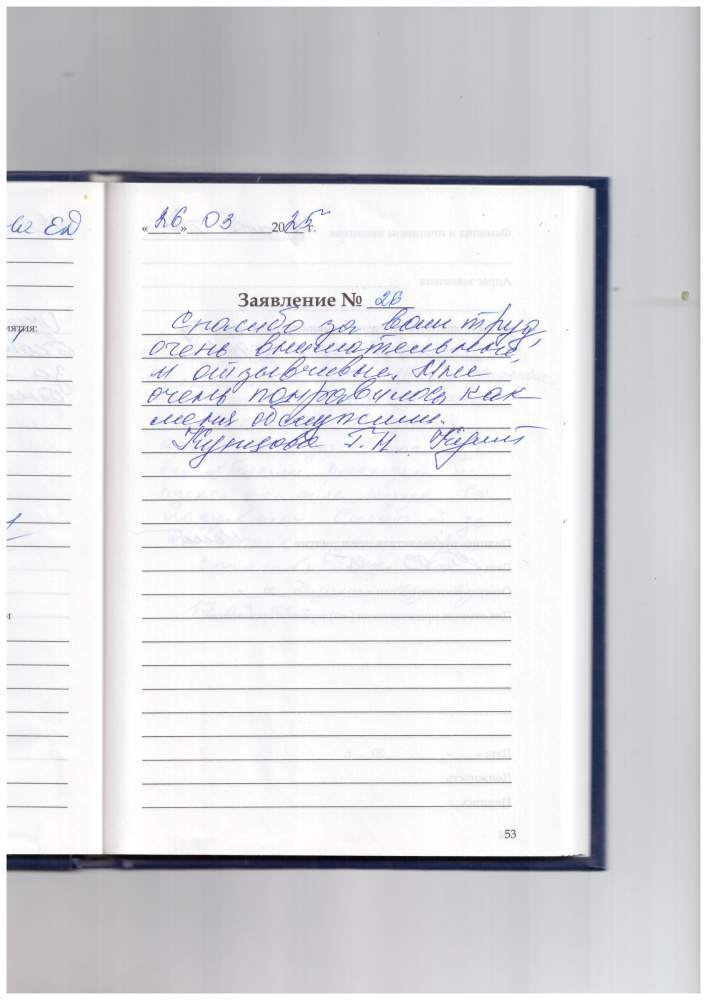 «26» 03 2025 г.
Заявление № 26
Спасибо за ваш труд,
очень внимательные,
и отзывчивые. Мне
очень понравилось, как
меня обслужили.
Кунцова Г.Н.
ЕД
иятия:
и
53